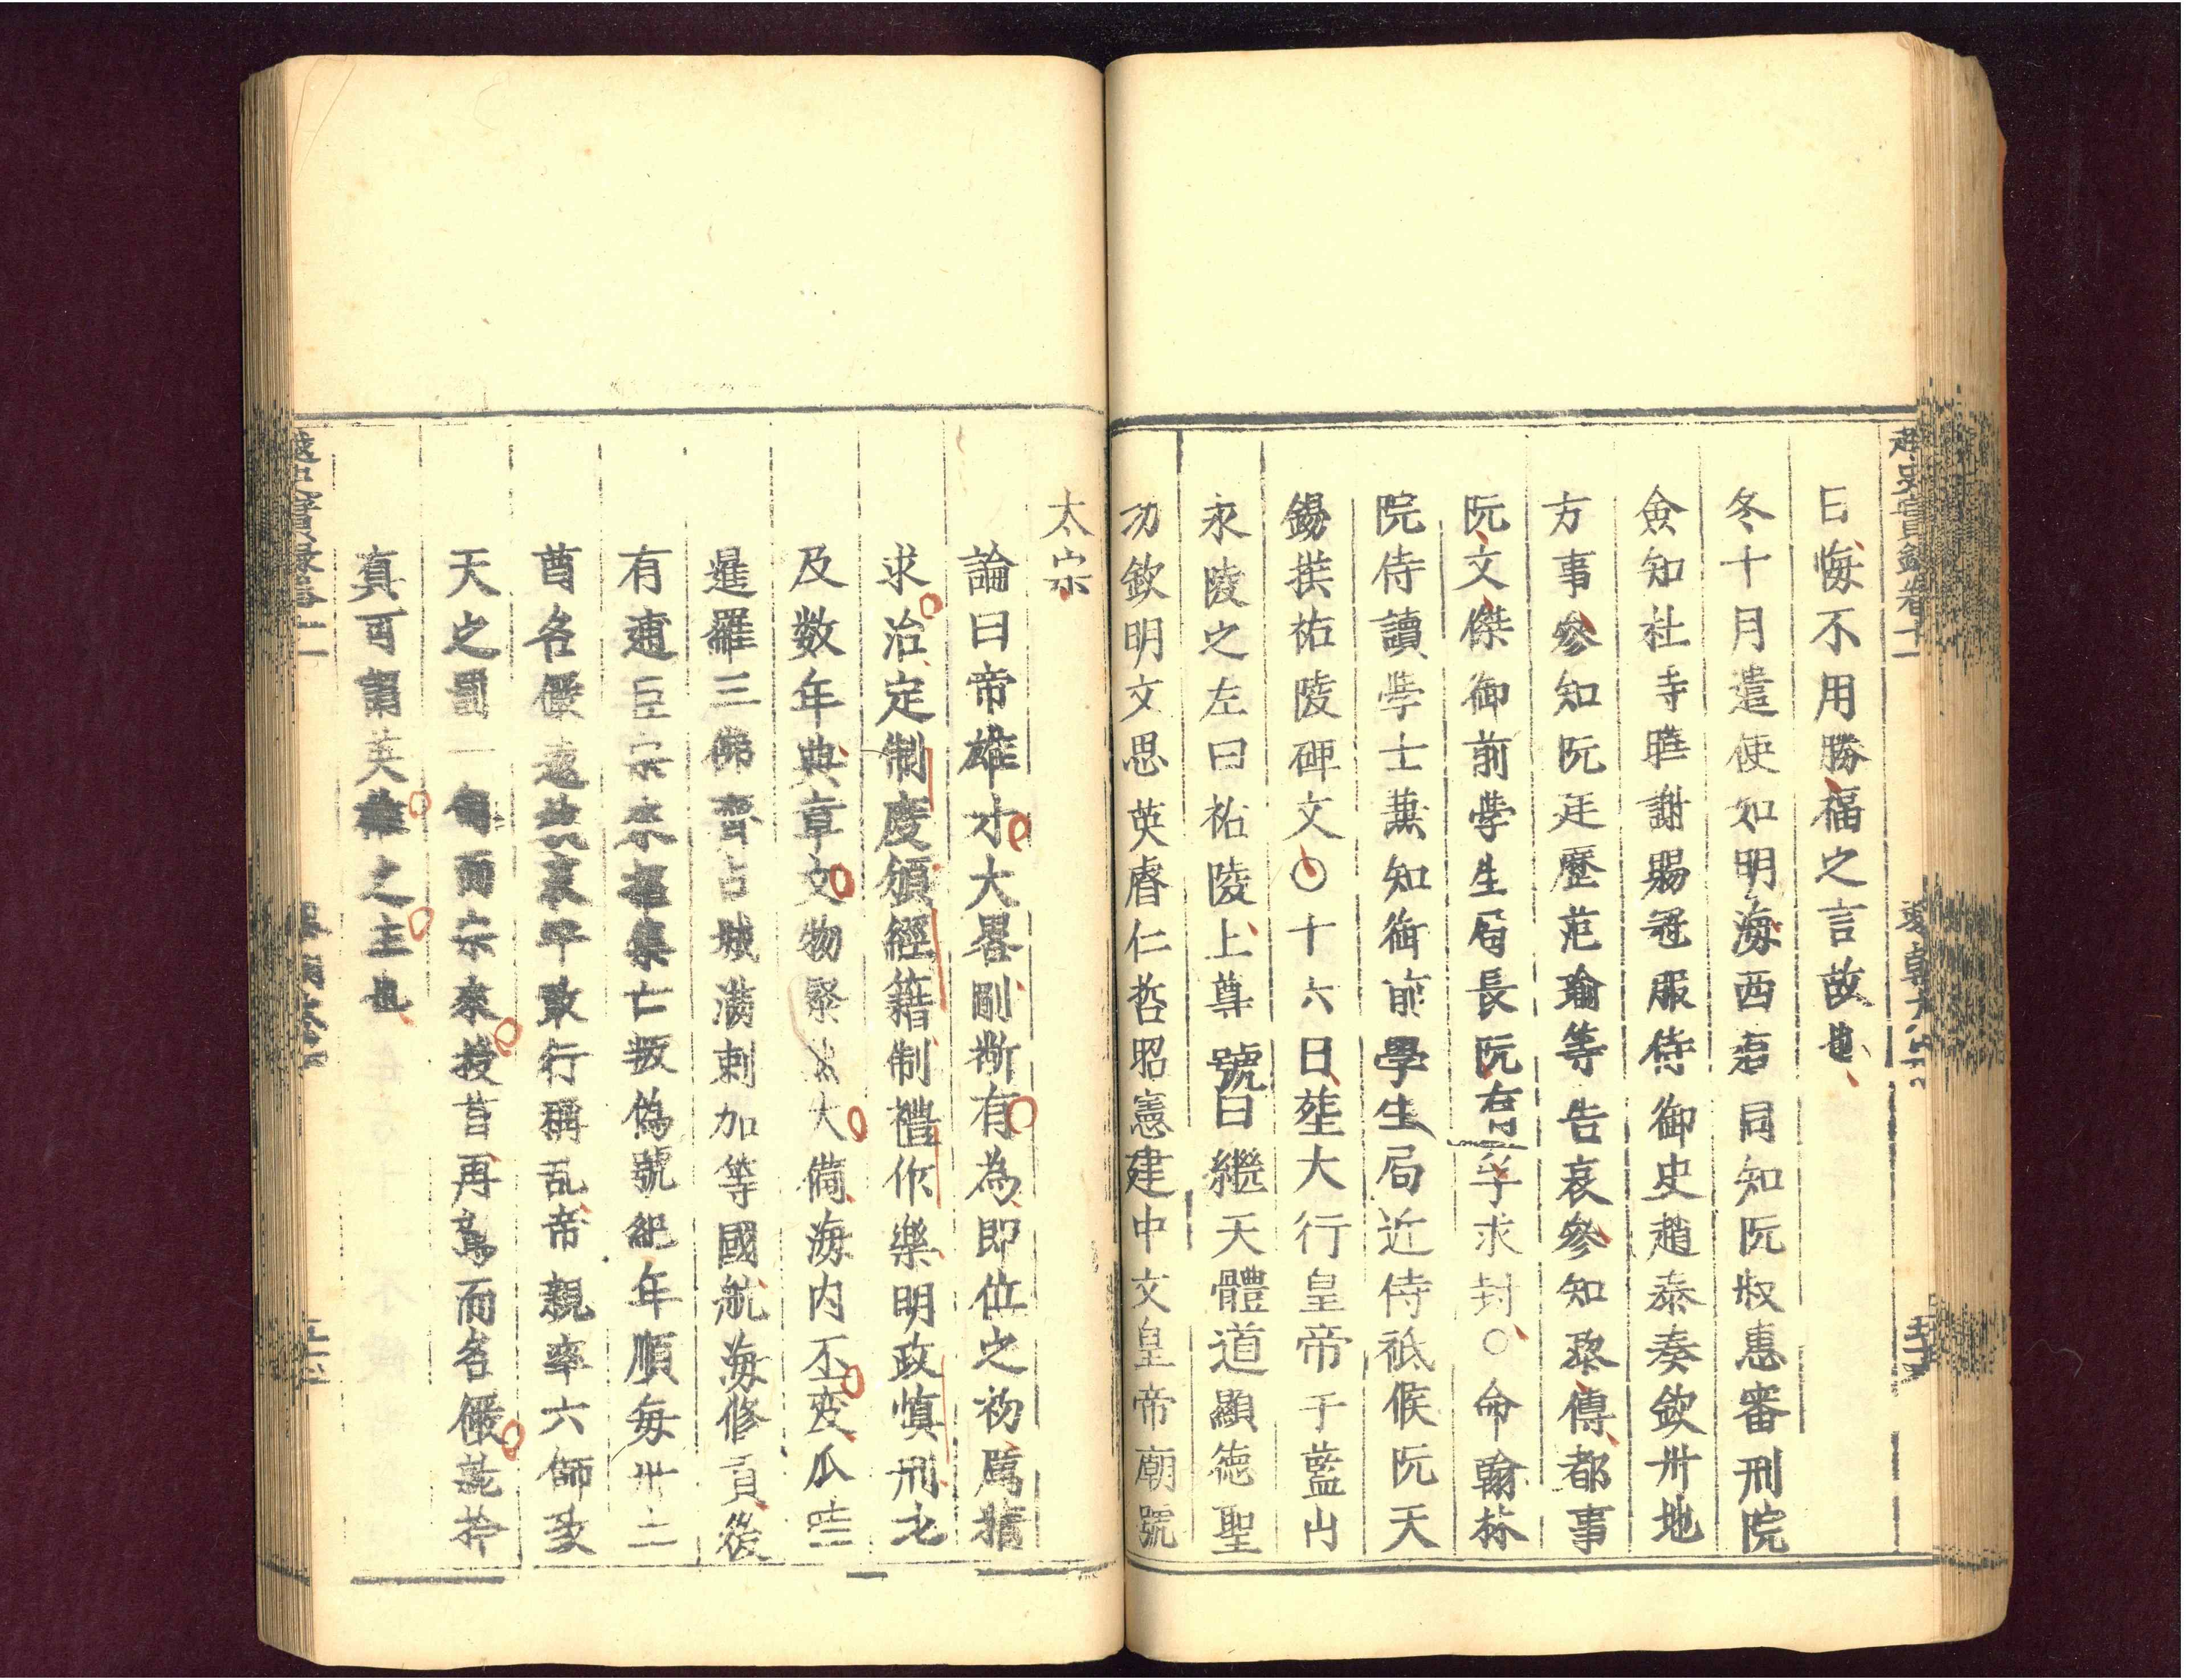 越史實錄卷十一
日悔不用勝福之言故也
冬十月遣使如明海西道同知阮收惠審刑院
僉知杜寺暀謝賜冠服侍御史趙泰奏欽州地
方事參知阮廷歷范瑜等告哀參知黎傳都事
阮文傑御前學生局長阮有孚求封○命翰林
院侍讀學士兼知御前學生局近侍祗候阮天
錫撰祐陵碑文○十六日葬大行皇帝于藍山
永陵之左曰祐陵上尊號曰繼天體道顯德聖
功欽明文思英睿仁哲昭憲建中文皇帝廟號
太宗
論曰帝雄才大畧剛斷有為即位之初厲精
求治定制度頒經籍制禮作樂明政慎刑
及数年典章文物大備海内丕变瓜哇
暹羅三佛齊占城滿剌加等國航海修貢後
有逋臣宗亡叛偽號紀年順每州二
酋名儼遠敢行稱乱帝親率六師致
天之罰一而宗來授首再為而名儼就
真可謂英雄之主也